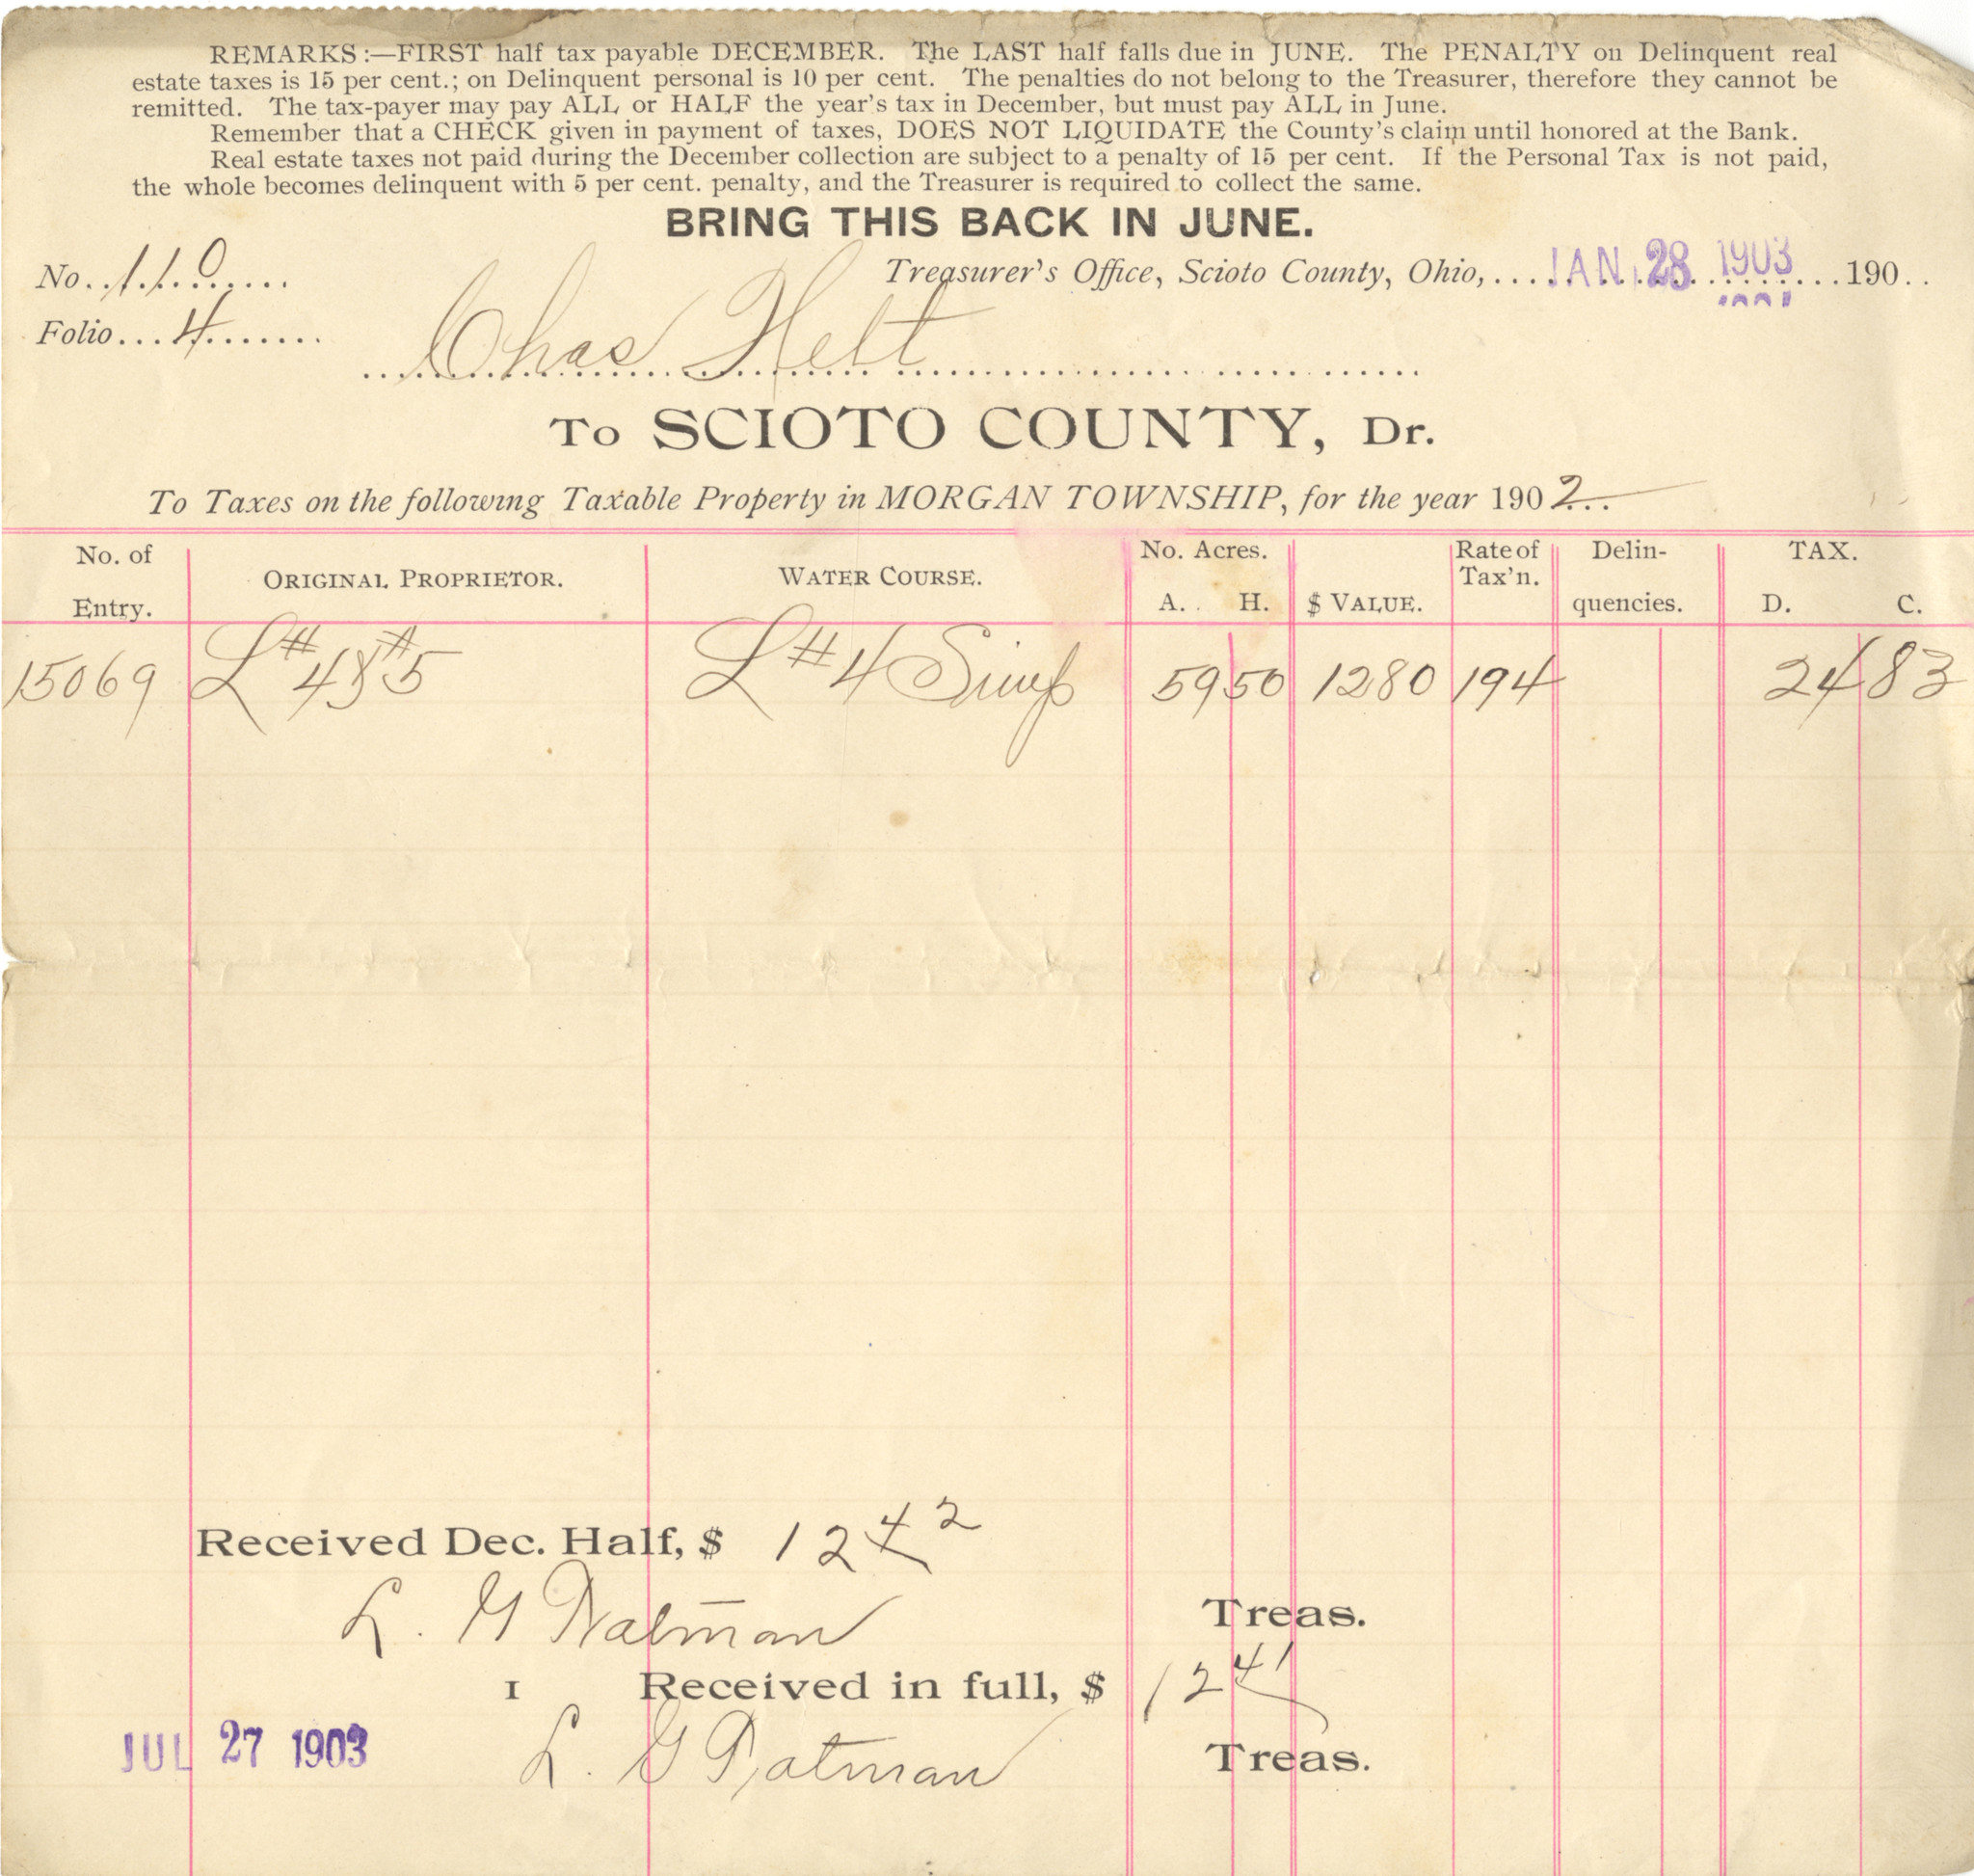 REMARKS :—FIRST half tax payable DECEMBER. The LAST half falls due in JUNE. The PENALTY on Delinquent real
estate taxes is 15 per cent.; on Delinquent personal is 10 per cent. The penalties do not belong to the Treasurer, therefore they cannot be
remitted. The tax-payer may pay ALL or HALF the year's tax in December, but must pay ALL in June.
Remember that a CHECK given in payment of taxes, DOES NOT LIQUIDATE the County's claim until honored at the Bank.
Real estate taxes not paid during the December collection are subject to a penalty of 15 per cent. If the Personal Tax is not paid,
the whole becomes delinquent with 5 per cent. penalty, and the Treasurer is required to collect the same.
BRING THIS BACK IN JUNE.
No. 110
Treasurer's Office, Scioto County, Ohio, JAN. 28 1903 190
Folio 4
Chas Helt
To SCIOTO COUNTY, Dr.
To Taxes on the following Taxable Property in MORGAN TOWNSHIP, for the year 1902
No. of Entry. ORIGINAL PROPRIETOR. WATER COURSE. No. Acres. A. H. $ VALUE. Rate of Tax'n. Delinquencies. TAX. D. C.
15069 L # 4 & # 5 L # 4 59 50 1280 194 24 83
Received Dec. Half, $ 12 42
L. G Treas.
1 Received in full, $ 12 41
JUL 27 1903 L. G Treas.